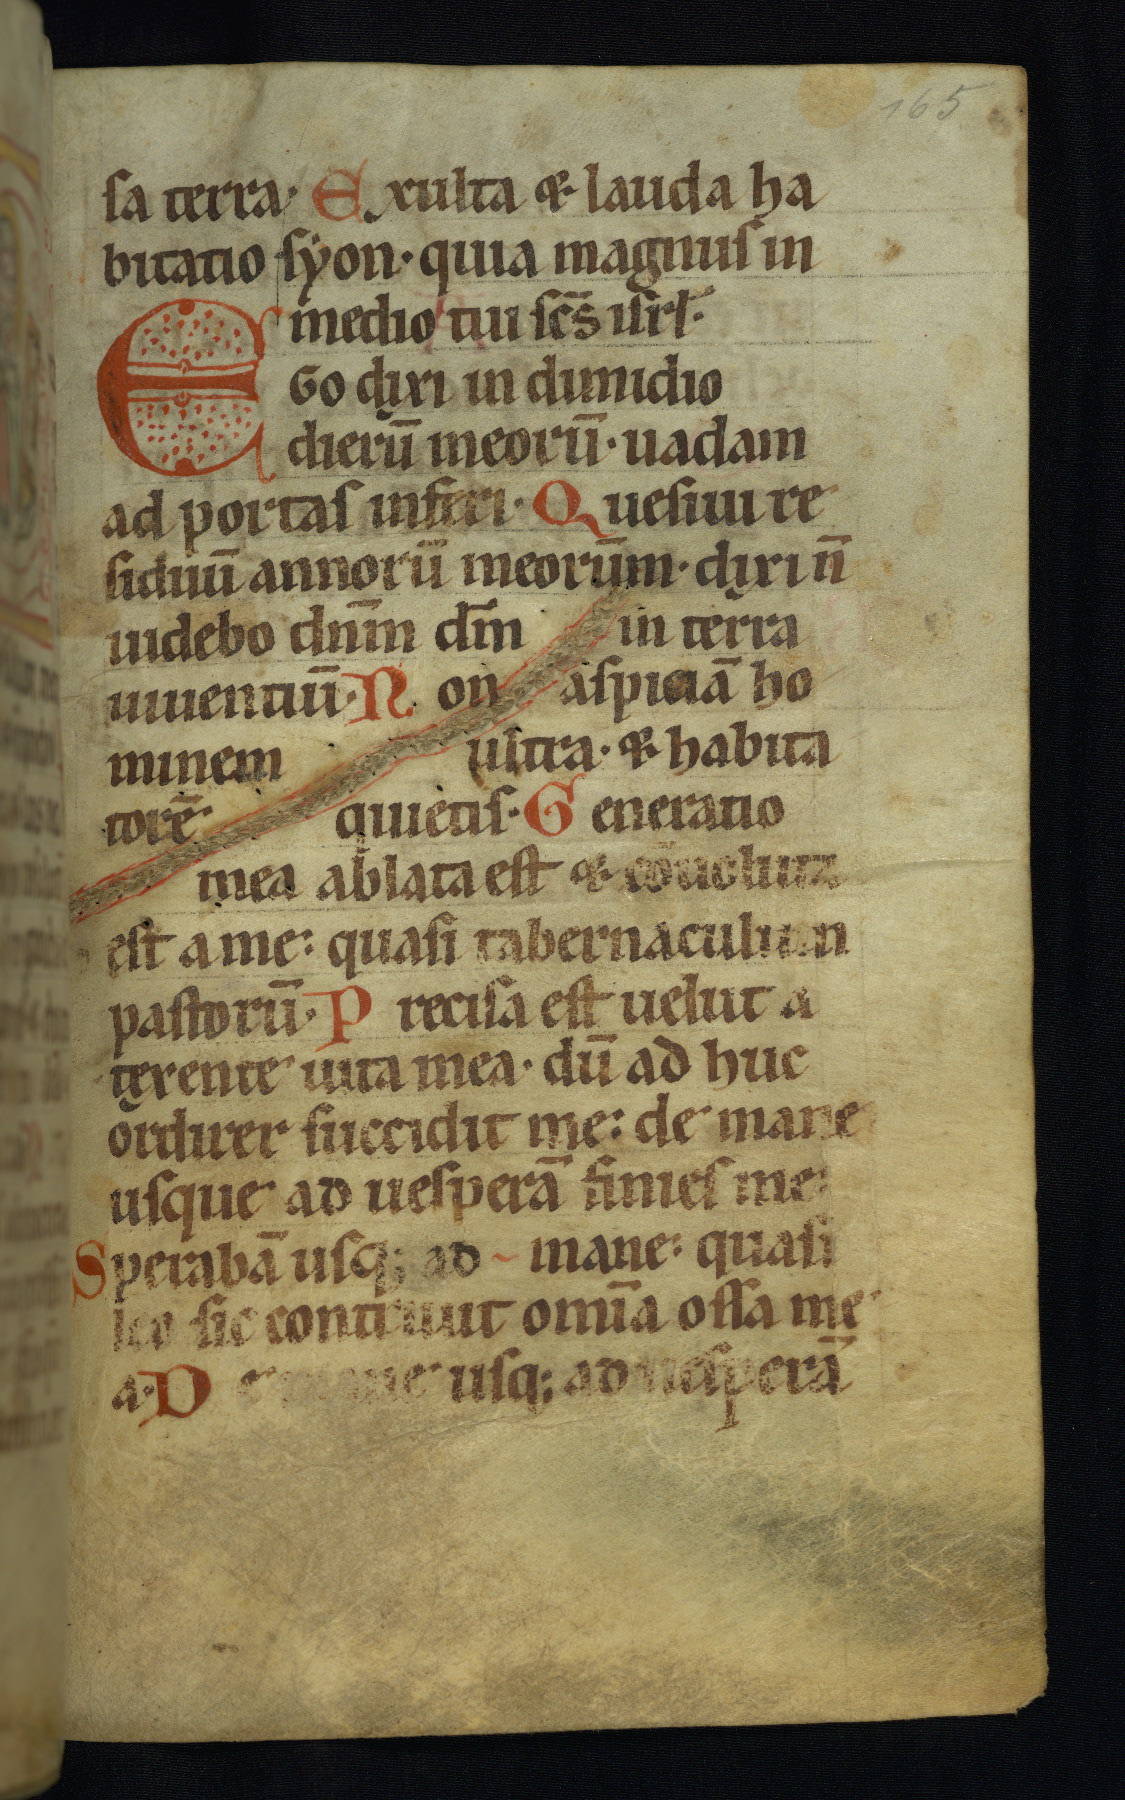 165
sa terra· Exulta & lauda ha
bitatio syon· quia magnus in
medio tui scs̄ isrl̄·
Ego dixi in dimidio
dierū meorū· uadam
ad portas inferi· Quesiui re
siduū annorū meorūm· dixi n̄
uidebo dnm̄ dm̄ in terra
uiuentiū· Non aspiciā ho
minem ultra· & habita
torē quietis· Generatio
mea ablata est & cōuoluta
est a me: quasi tabernaculum
pastorū· Precisa est uelut a
texente uita mea· dū ad huc
ordirer succidit me: de mane
usque ad uesperā finies me:
Sperabā usq; ad ~ mane: quasi
leo sic contriuit omīa ossa me
a· De mane usq; ad uesperā